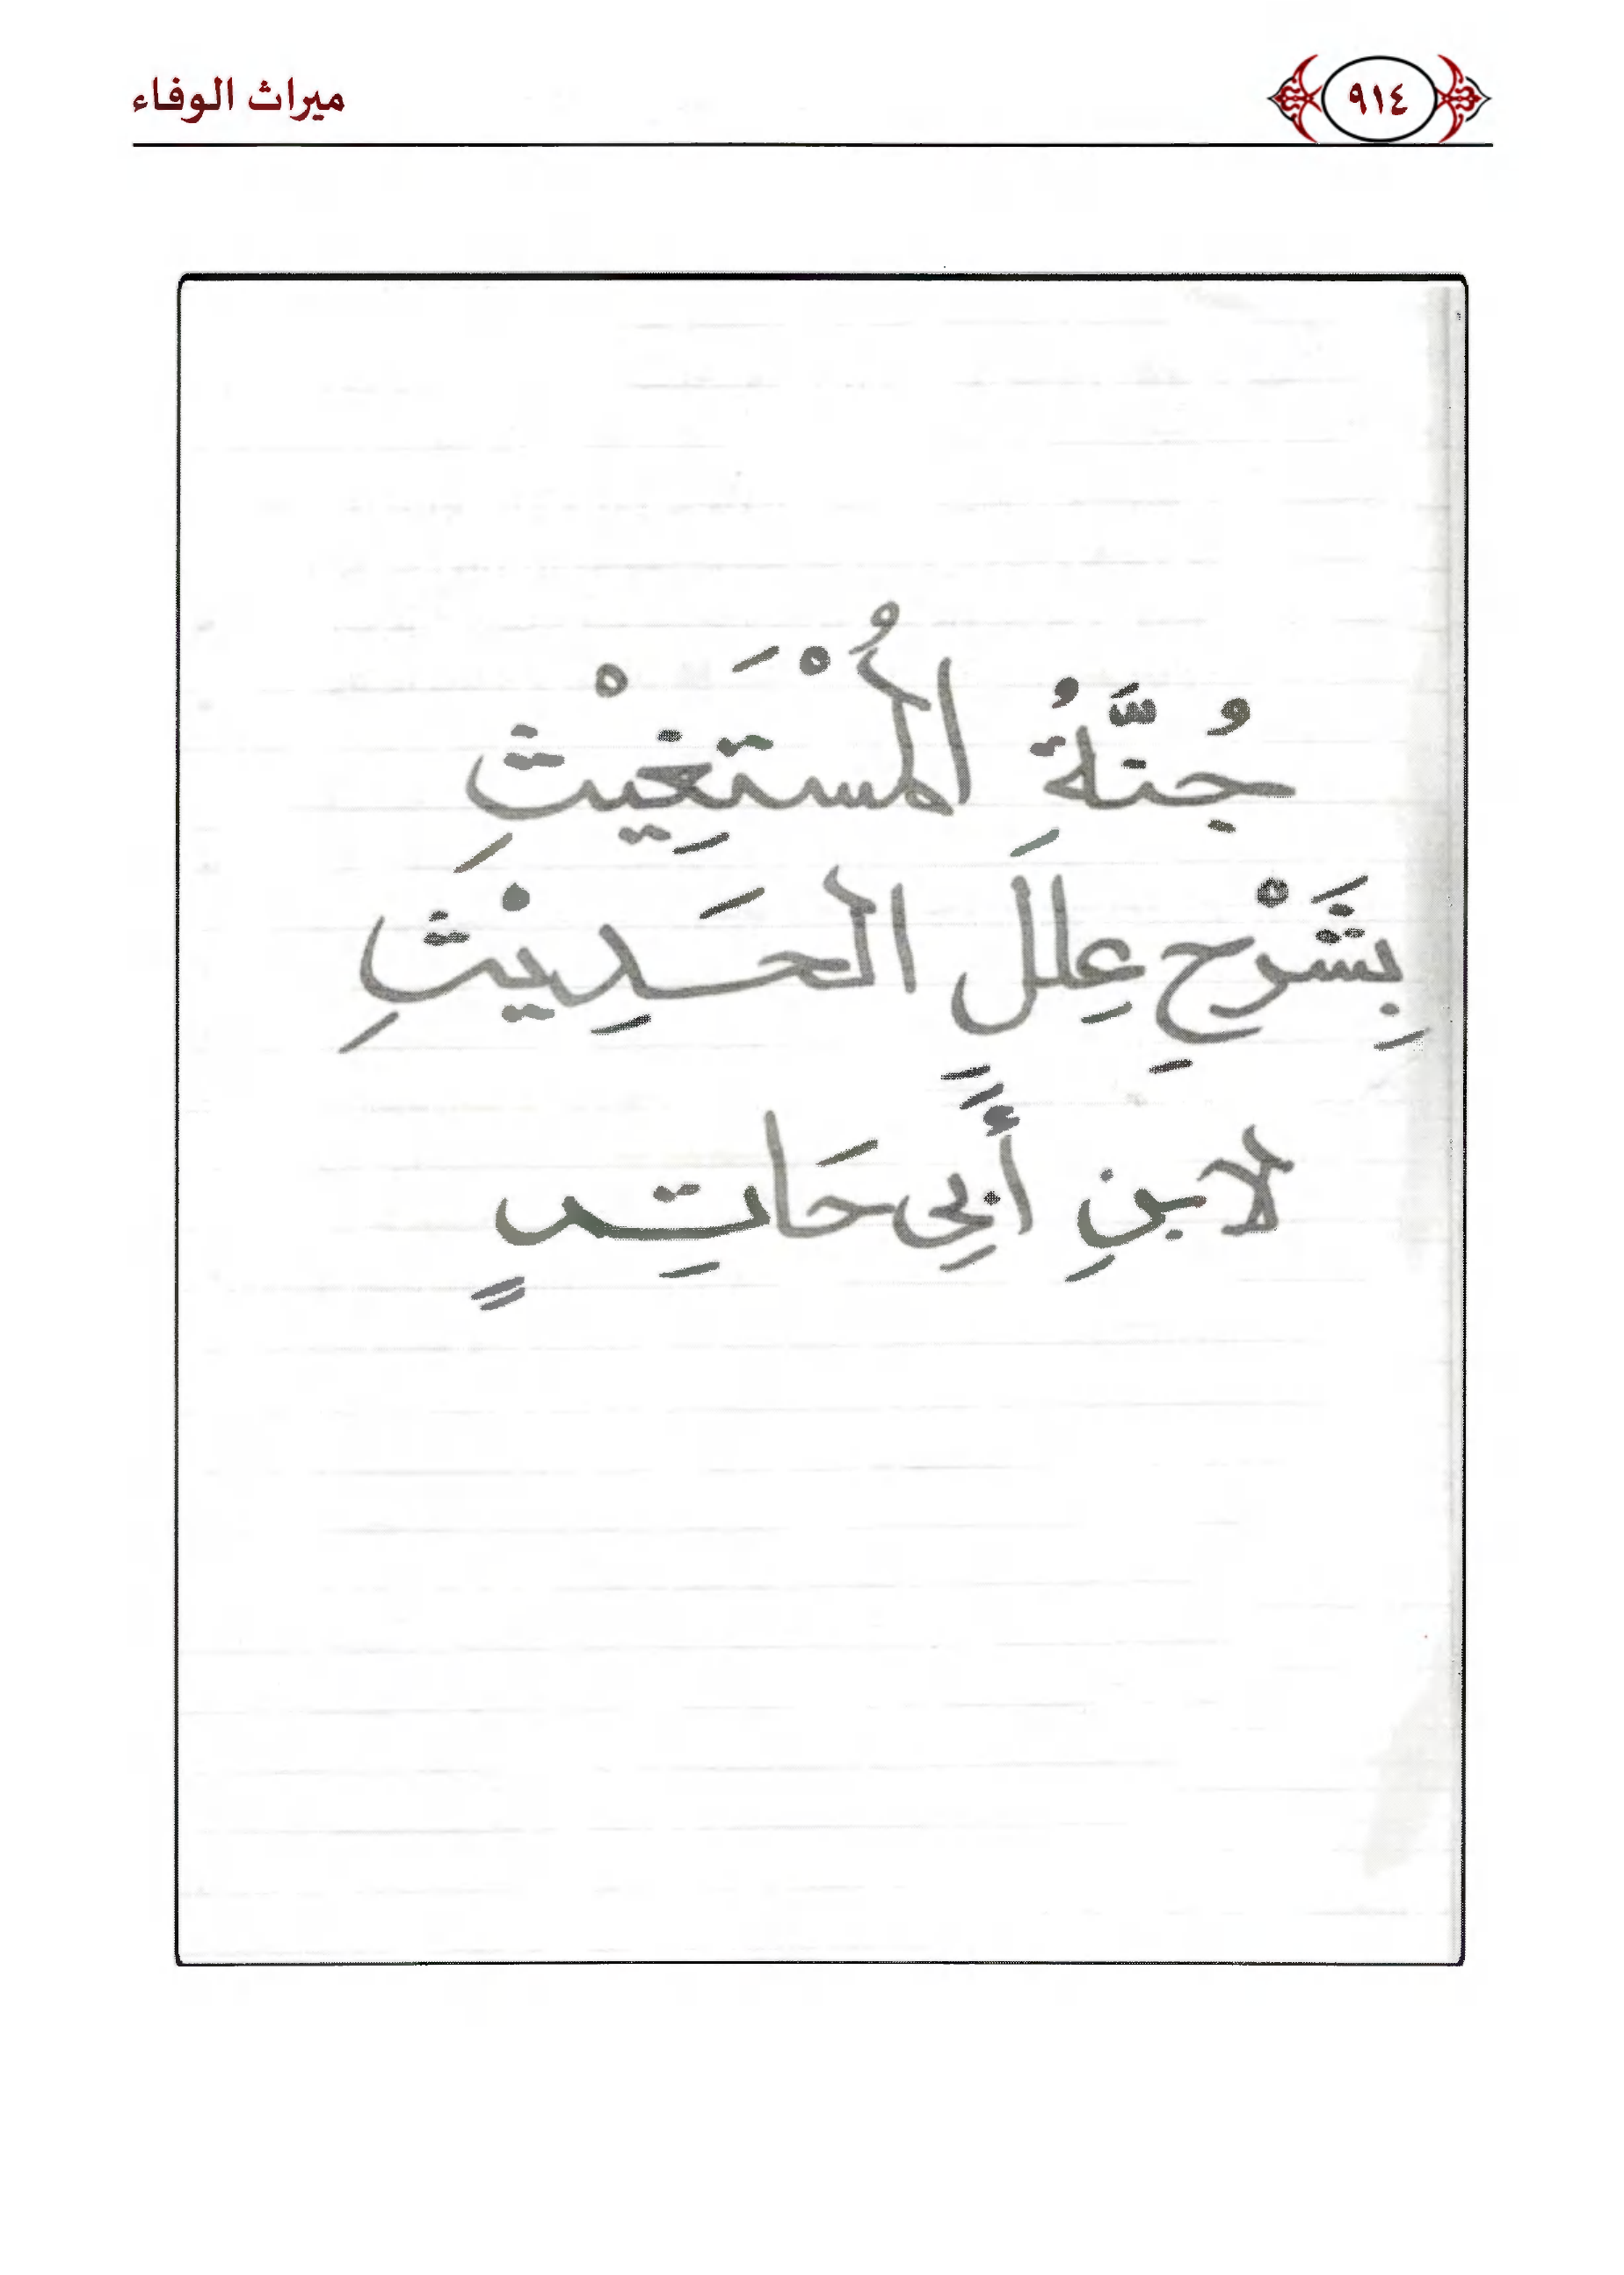 ٩١٤
ميراث الوفاء
جُنَّةُ المُسْتَغِيْثِ
بِشَرْحِ عِلَلِ الحَدِيْثِ
لابنِ أَبِي حَاتِمٍ